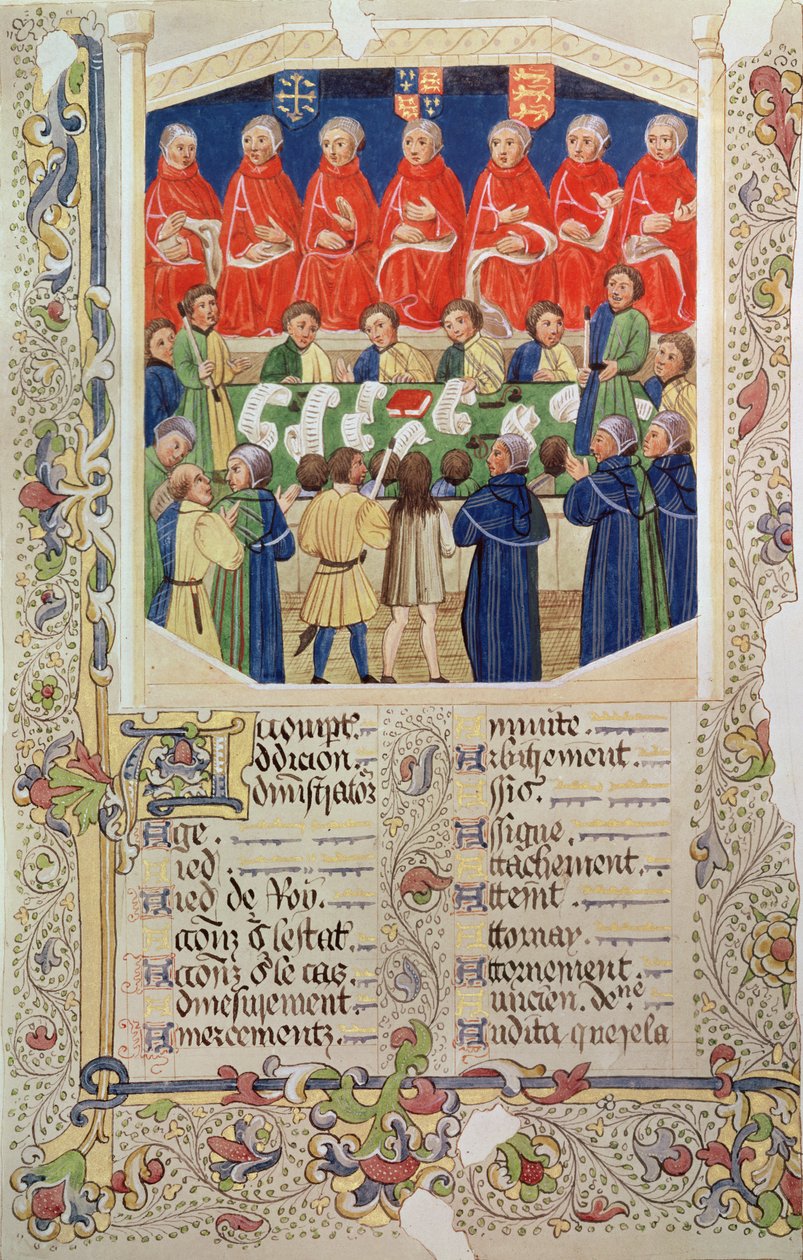 Accompt.
Addicion.
Administrators
Age.
Aied.
Aied de Roy.
Accons s lestat.
Accons s le cas.
Admesurement.
Amercementz.
Annuite.
Arbitrement.
Assis.
Assigne.
Attachement.
Atteint.
Attornay.
Attornement.
Auncien. dene.
Audita querela